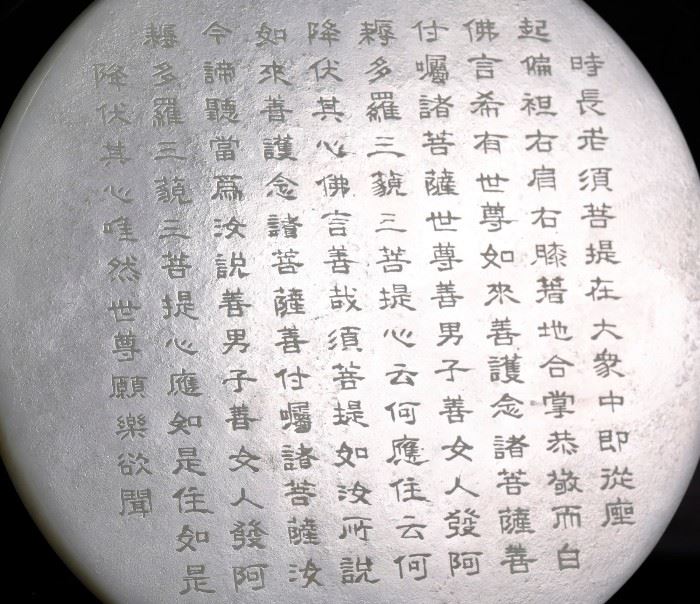 時長老須菩提在大衆中即從座
起偏袒右肩右膝著地合掌恭敬而白
佛言希有世尊如來善護念諸菩薩善
付囑諸菩薩世尊善男子善女人發阿
耨多羅三藐三菩提心云何應住云何
降伏其心佛言善哉須菩提如汝所說
如來善護念諸菩薩善付囑諸菩薩汝
今諦聽當爲汝說善男子善女人發阿
耨多羅三藐三菩提心應如是住如是
降伏其心唯然世尊願樂欲聞